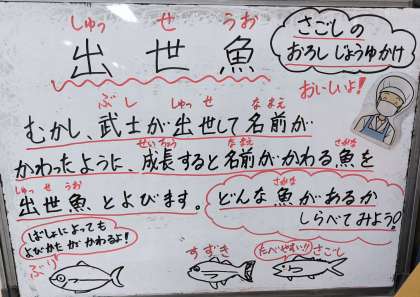 しゅっ せ うお
出世魚
さごしの
おろしじょうゆかけ
おいしいよ!
ぶし しゅっ せ なまえ
むかし、武士が出世して名前が
せいちょう なまえ さかな
かわったように、成長すると名前がかわる魚を
しゅっ せ うお
出世魚とよびます。
さかな
どんな魚があるか
しらべてみよう!
ばしょによっても
よびかたがかわるよ!
ぶり
すずき
たべやすい!!
さごし